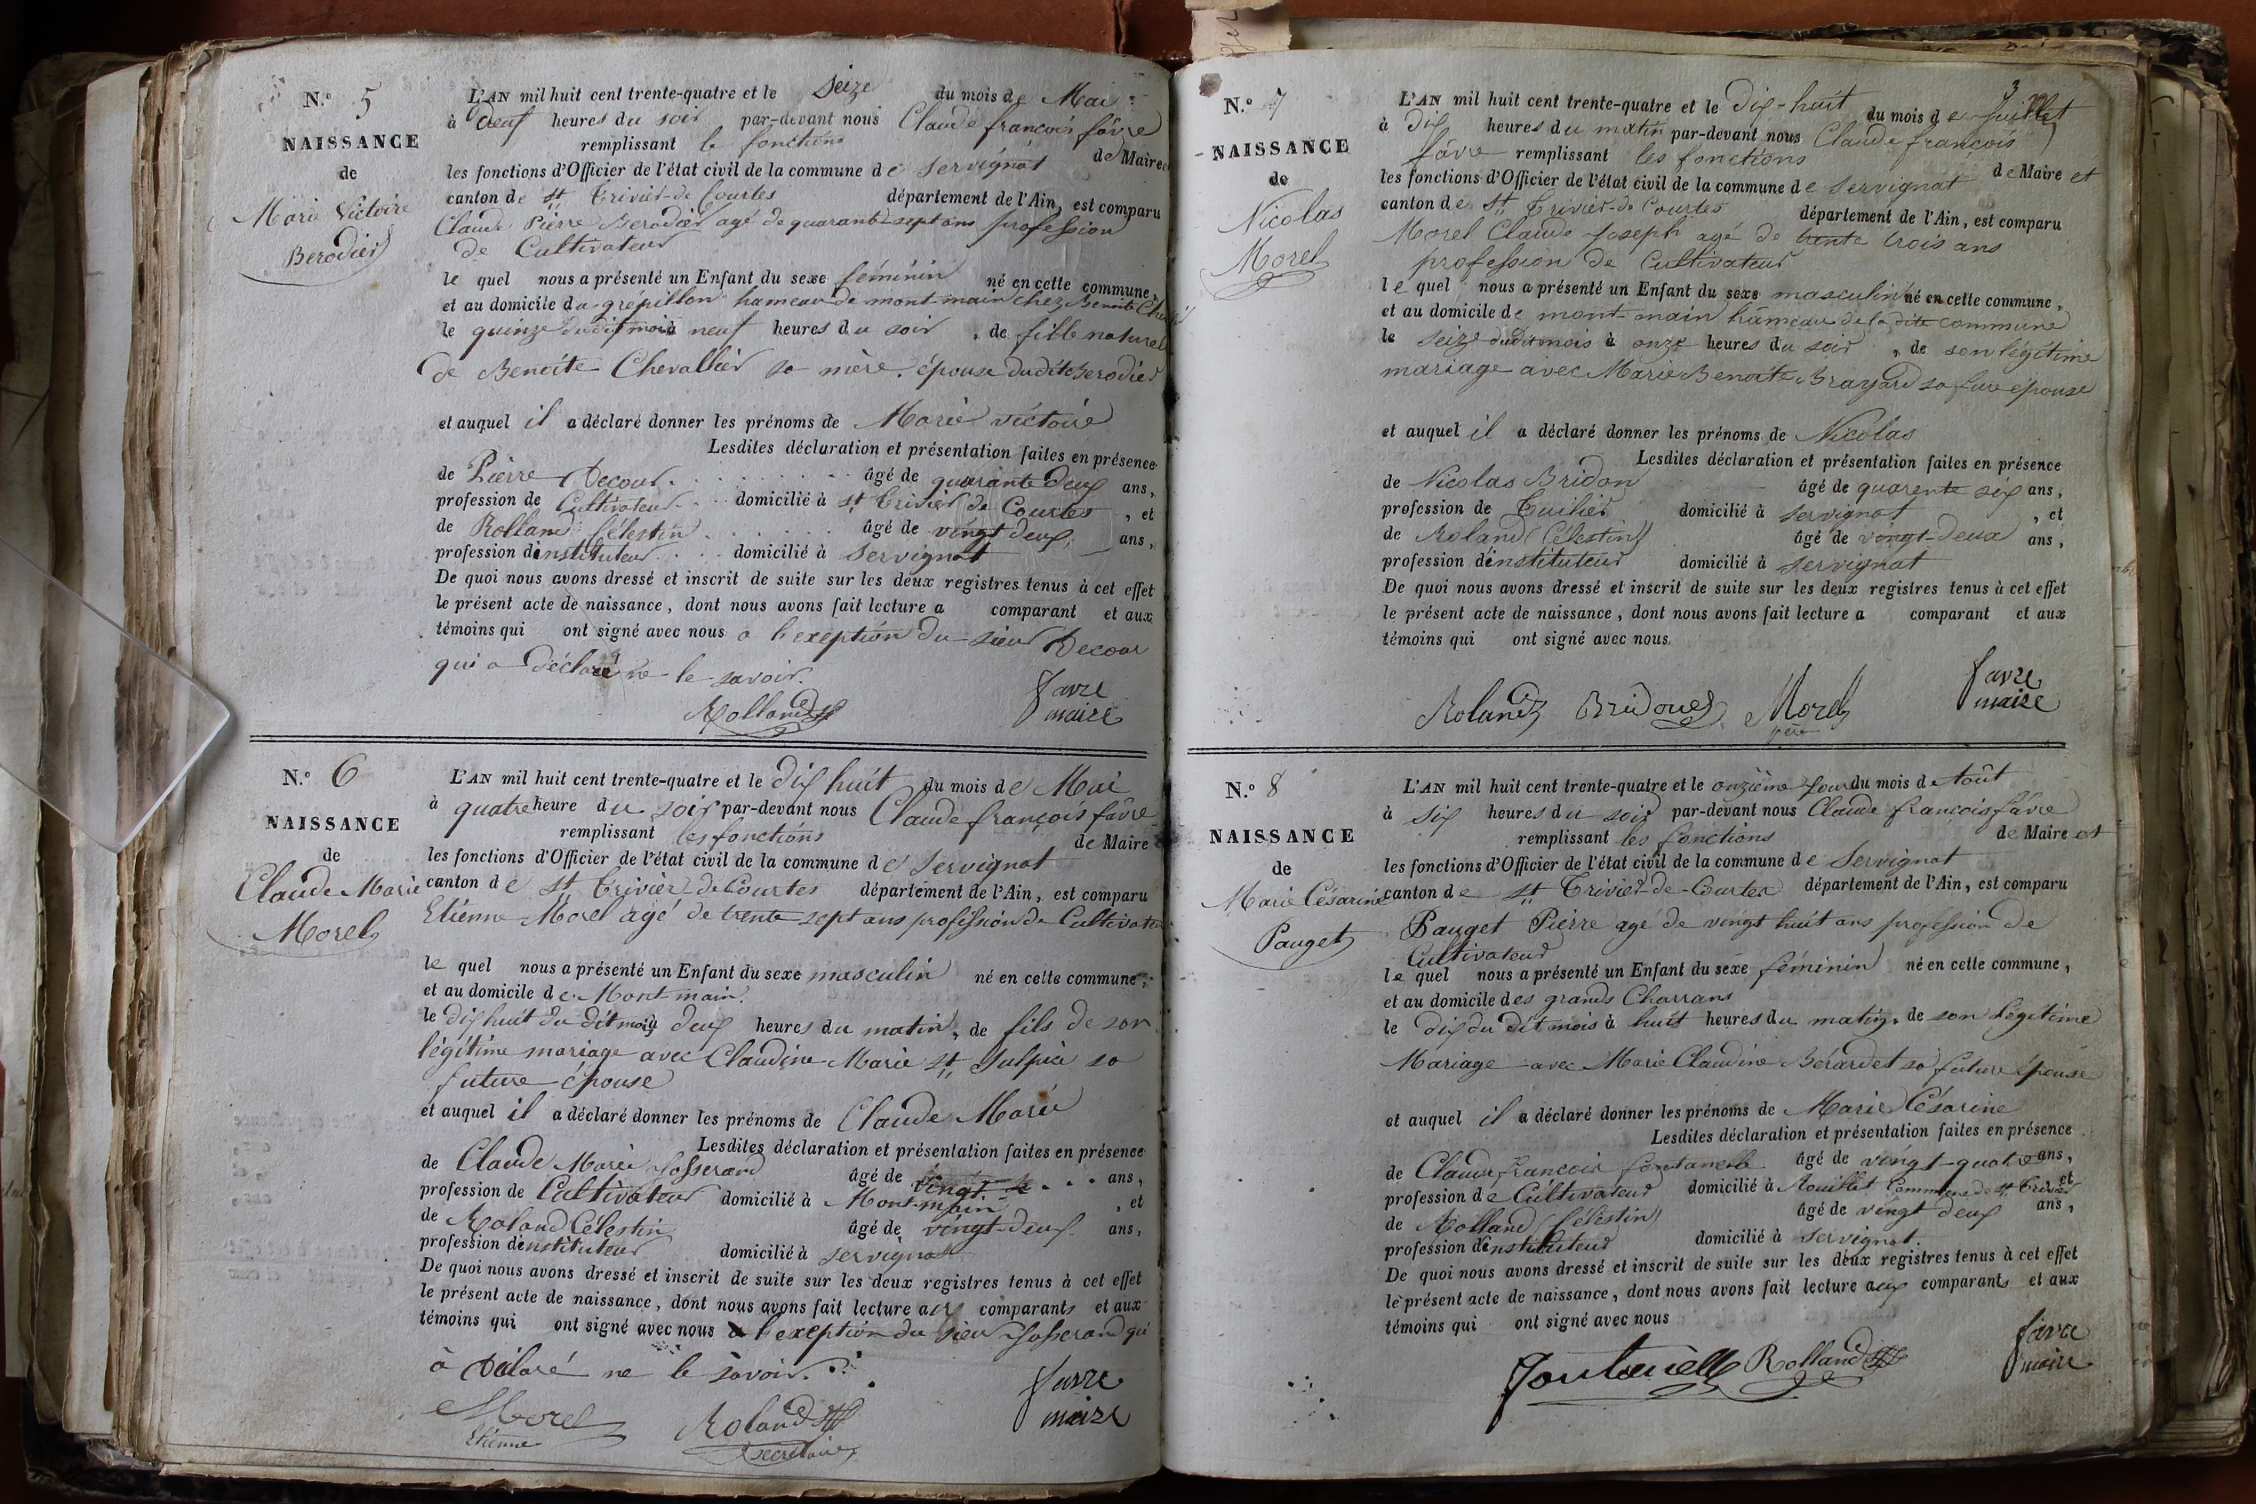 N.º 5
NAISSANCE
de
Marie Victoire
Berodier
L'AN mil huit cent trente-quatre et le Seize du mois de Mai
à neuf heures du soir par-devant nous Claude françois fâvre
remplissant le fonctions de Maire et
les fonctions d'Officier de l'état civil de la commune de Servignat
canton de St Trivier-de Courtes département de l'Ain, est comparu
Claude Pierre Berodier agé de quarante-sept ans profession
de Cultivateur
le quel nous a présenté un Enfant du sexe féminin né en cette commune,
et au domicile du grépillon hameau de mont-main chez Benoite
le quinze dudit mois à neuf heures du soir, de fille naturel
de Benoite Chevallier sa mère. épouse dudit Berodier
et auquel il a déclaré donner les prénoms de Marie victoire
Lesdites déclaration et présentation faites en présence
de Pierre Decour âgé de quarante deux ans,
profession de Cultivateur domicilié à St Trivier de Courtes, et
de Rolland Célestin âgé de vingt deux ans,
profession d'instituteur domicilié à Servignat
De quoi nous avons dressé et inscrit de suite sur les deux registres tenus à cet effet
le présent acte de naissance, dont nous avons fait lecture a comparant et aux
témoins qui ont signé avec nous a l'exeption du sieur Decour
qui a déclaré ne le savoir.
Rolland
favre
maire
N.º 6
NAISSANCE
de
Claude Marie
Morel
L'AN mil huit cent trente-quatre et le dix huit du mois de Mai
à quatre heure du soir par-devant nous Claude françois fâvre
remplissant les fonctions de Maire
les fonctions d'Officier de l'état civil de la commune de Servignat
canton de St Trivier de Courtes département de l'Ain, est comparu
Etiénne Morel agé de trente sept ans profession de Cultivateur
le quel nous a présenté un Enfant du sexe masculin né en cette commune,
et au domicile de Mont main.
le dix huit du dit mois à deux heures du matin, de fils de son
légitime mariage avec Claudine Marie St Sulpice sa
future épouse
et auquel il a déclaré donner les prénoms de Claude Marie
Lesdites déclaration et présentation faites en présence
de Claude Marie Josserand âgé de vingt ans,
profession de Cultivateur domicilié à Mont-main, et
de Roland Célestin âgé de vingt-deux ans,
profession d'instituteur domicilié à Servignat
De quoi nous avons dressé et inscrit de suite sur les deux registres tenus à cet effet
le présent acte de naissance, dont nous avons fait lecture aux comparants et aux
témoins qui ont signé avec nous a l'exeption du sieur Josserand qui
à déclaré ne le savoir.
Morel
Etiénne
Roland
secrétaire
favre
maire
3
N.º 7
NAISSANCE
de
Nicolas
Morel
L'AN mil huit cent trente-quatre et le Dix-huit du mois de Juillet
à dix heures du matin par-devant nous Claude françois
fâvre remplissant les fonctions de Maire et
les fonctions d'Officier de l'état civil de la commune de Servignat
canton de St Trivier-de Courtes département de l'Ain, est comparu
Morel Claude Joseph agé de trente trois ans
profession de Cultivateur
le quel nous a présenté un Enfant du sexe masculin né en cette commune,
et au domicile de mont-main hameau de la dite commune
le Seize dudit mois à onze heures du soir, de son légitime
mariage avec Marie Benoite Brayard sa future epouse
et auquel il a déclaré donner les prénoms de Nicolas
Lesdites déclaration et présentation faites en présence
de Nicolas Bridon âgé de quarente six ans,
profession de Tuilier domicilié à Servignat, et
de Roland Célestin âgé de vingt-deux ans,
profession d'instituteur domicilié à Servignat
De quoi nous avons dressé et inscrit de suite sur les deux registres tenus à cet effet
le présent acte de naissance, dont nous avons fait lecture a comparant et aux
témoins qui ont signé avec nous
Roland Bridon Morel
père
favre
maire
N.º 8
NAISSANCE
de
Marie Césarine
Pauget
L'AN mil huit cent trente-quatre et le onzième jour du mois de Août
à six heures du soir par-devant nous Claude françois fâvre
remplissant les fonctions de Maire et
les fonctions d'Officier de l'état civil de la commune de Servignat
canton de St Trivier-de-Courtes département de l'Ain, est comparu
Pauget Pierre agé de vingt huit ans profession de
Cultivateur
le quel nous a présenté un Enfant du sexe féminin né en cette commune,
et au domicile des grands Charrans
le dix du dit mois à huit heures du matin, de son légitime
Mariage avec Marie Claudine Berardet sa future épouse
et auquel il a déclaré donner les prénoms de Marie Césarine
Lesdites déclaration et présentation faites en présence
de Claude françois fontanelle âgé de vingt-quatre ans,
profession de Cultivateur domicilié à Commune de St Trivier et
de Rolland Célestin âgé de vingt deux ans,
profession d'instituteur domicilié à Servignat.
De quoi nous avons dressé et inscrit de suite sur les deux registres tenus à cet effet
le présent acte de naissance, dont nous avons fait lecture aux comparants et aux
témoins qui ont signé avec nous
fontanelle Rolland
favre
maire